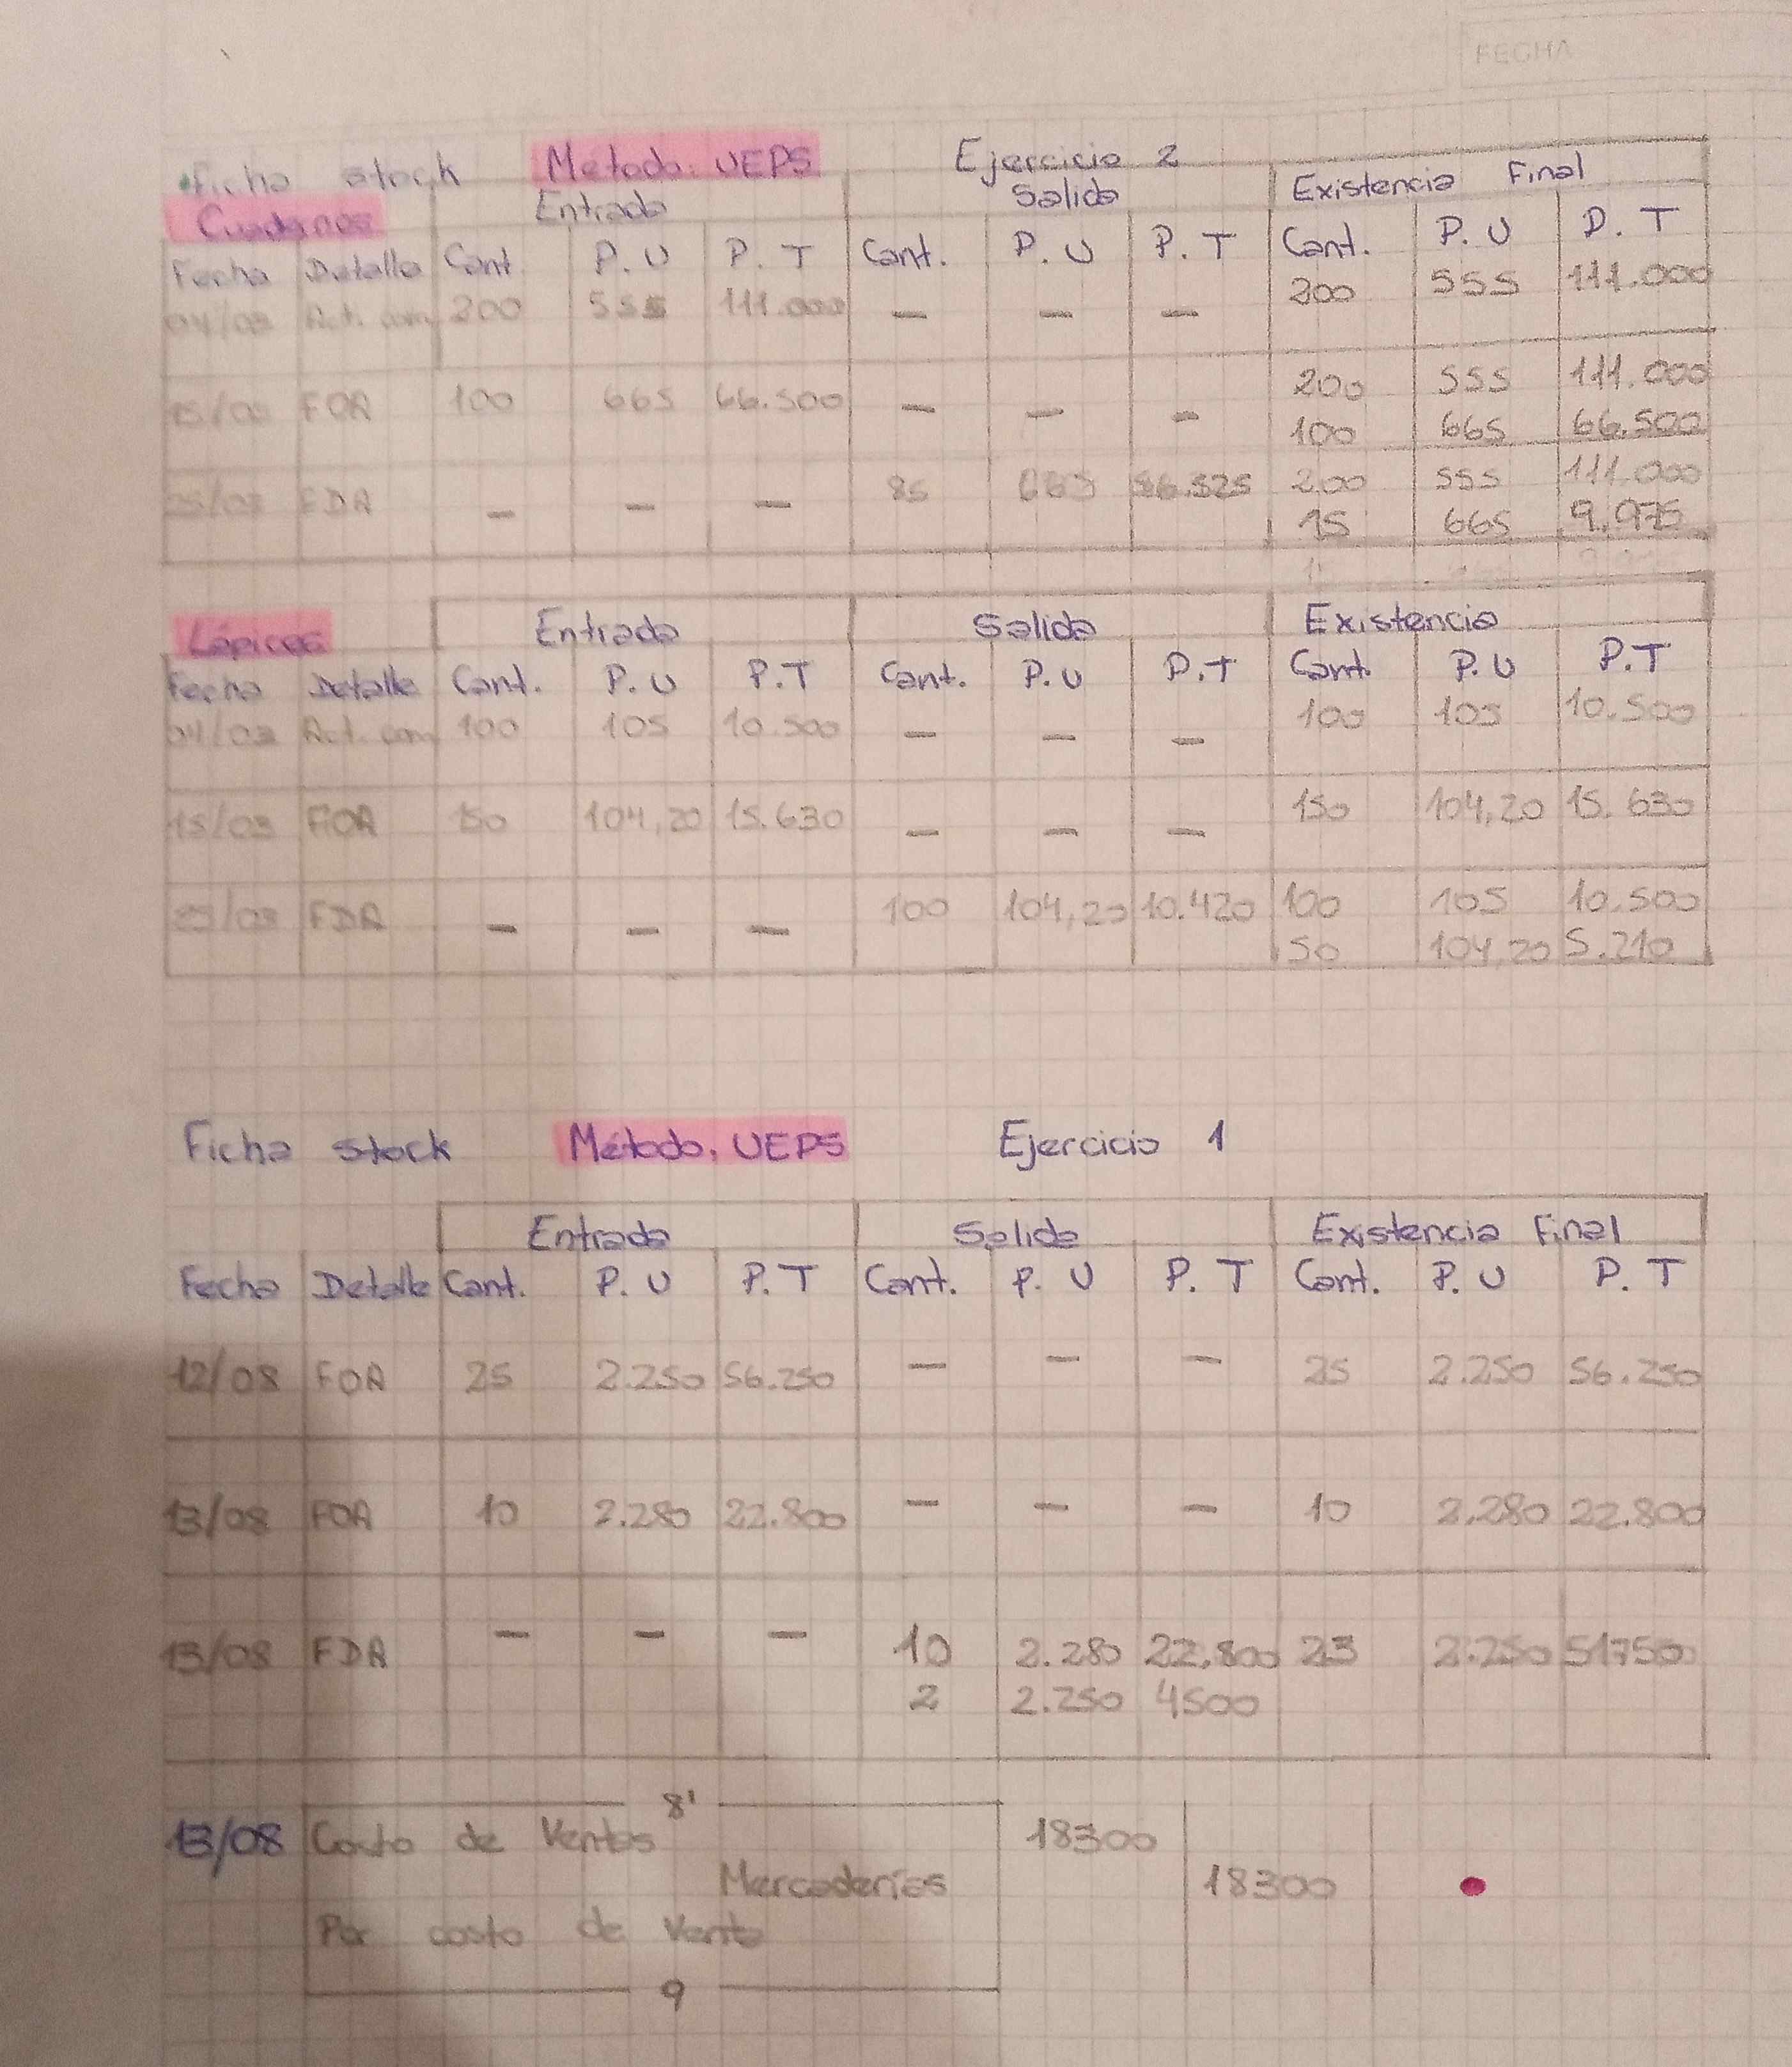 FECHA
Ficha stock Método: UEPS Ejercicio 2
Cuadernos Entrada Salida Existencia Final
Fecha Detalle Cant. P. U P. T Cant. P. U P. T Cant. P. U P. T
04/03 Act. com 200 555 111.000 — — — 200 555 111.000
15/03 FOA 100 665 66.500 — — — 200 555 111.000
100 665 66.500
25/03 FDA — — — 85 665 56.525 200 555 111.000
15 665 9.975
Lápices Entrada Salida Existencia
Fecha Detalle Cant. P. U P.T Cant. P. U P.T Cant. P. U P.T
04/03 Act. com 100 105 10.500 — — — 100 105 10.500
15/03 FOA 150 104,20 15.630 — — — 150 104,20 15.630
25/03 FDA — — — 100 104,20 10.420 100 105 10.500
50 104,20 5.210
Ficha stock Método: UEPS Ejercicio 1
Entrada Salida Existencia Final
Fecha Detalle Cant. P. U P.T Cant. P. U P. T Cant. P. U P. T
12/08 FOA 25 2.250 56.250 — — — 25 2.250 56.250
13/08 FOA 10 2.280 22.800 — — — 10 2.280 22.800
13/08 FDA — — — 10 2.280 22.800 23 2.250 51750
2 2.250 4500
8'
13/08 Costo de Ventas 18300
Mercaderías 18300
Por costo de Venta
9